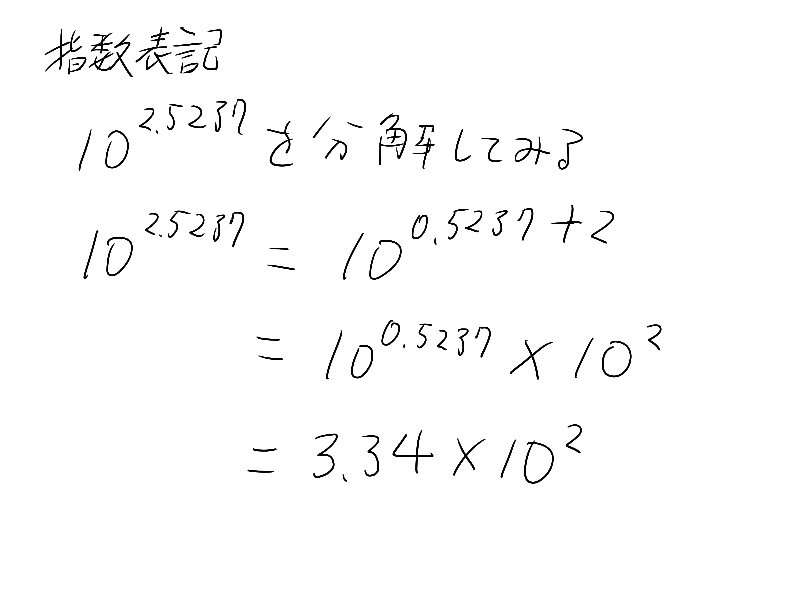 指数表記
10^2.5237を分解してみる
10^2.5237 = 10^0.5237+2
= 10^0.5237 × 10^2
= 3.34 × 10^2